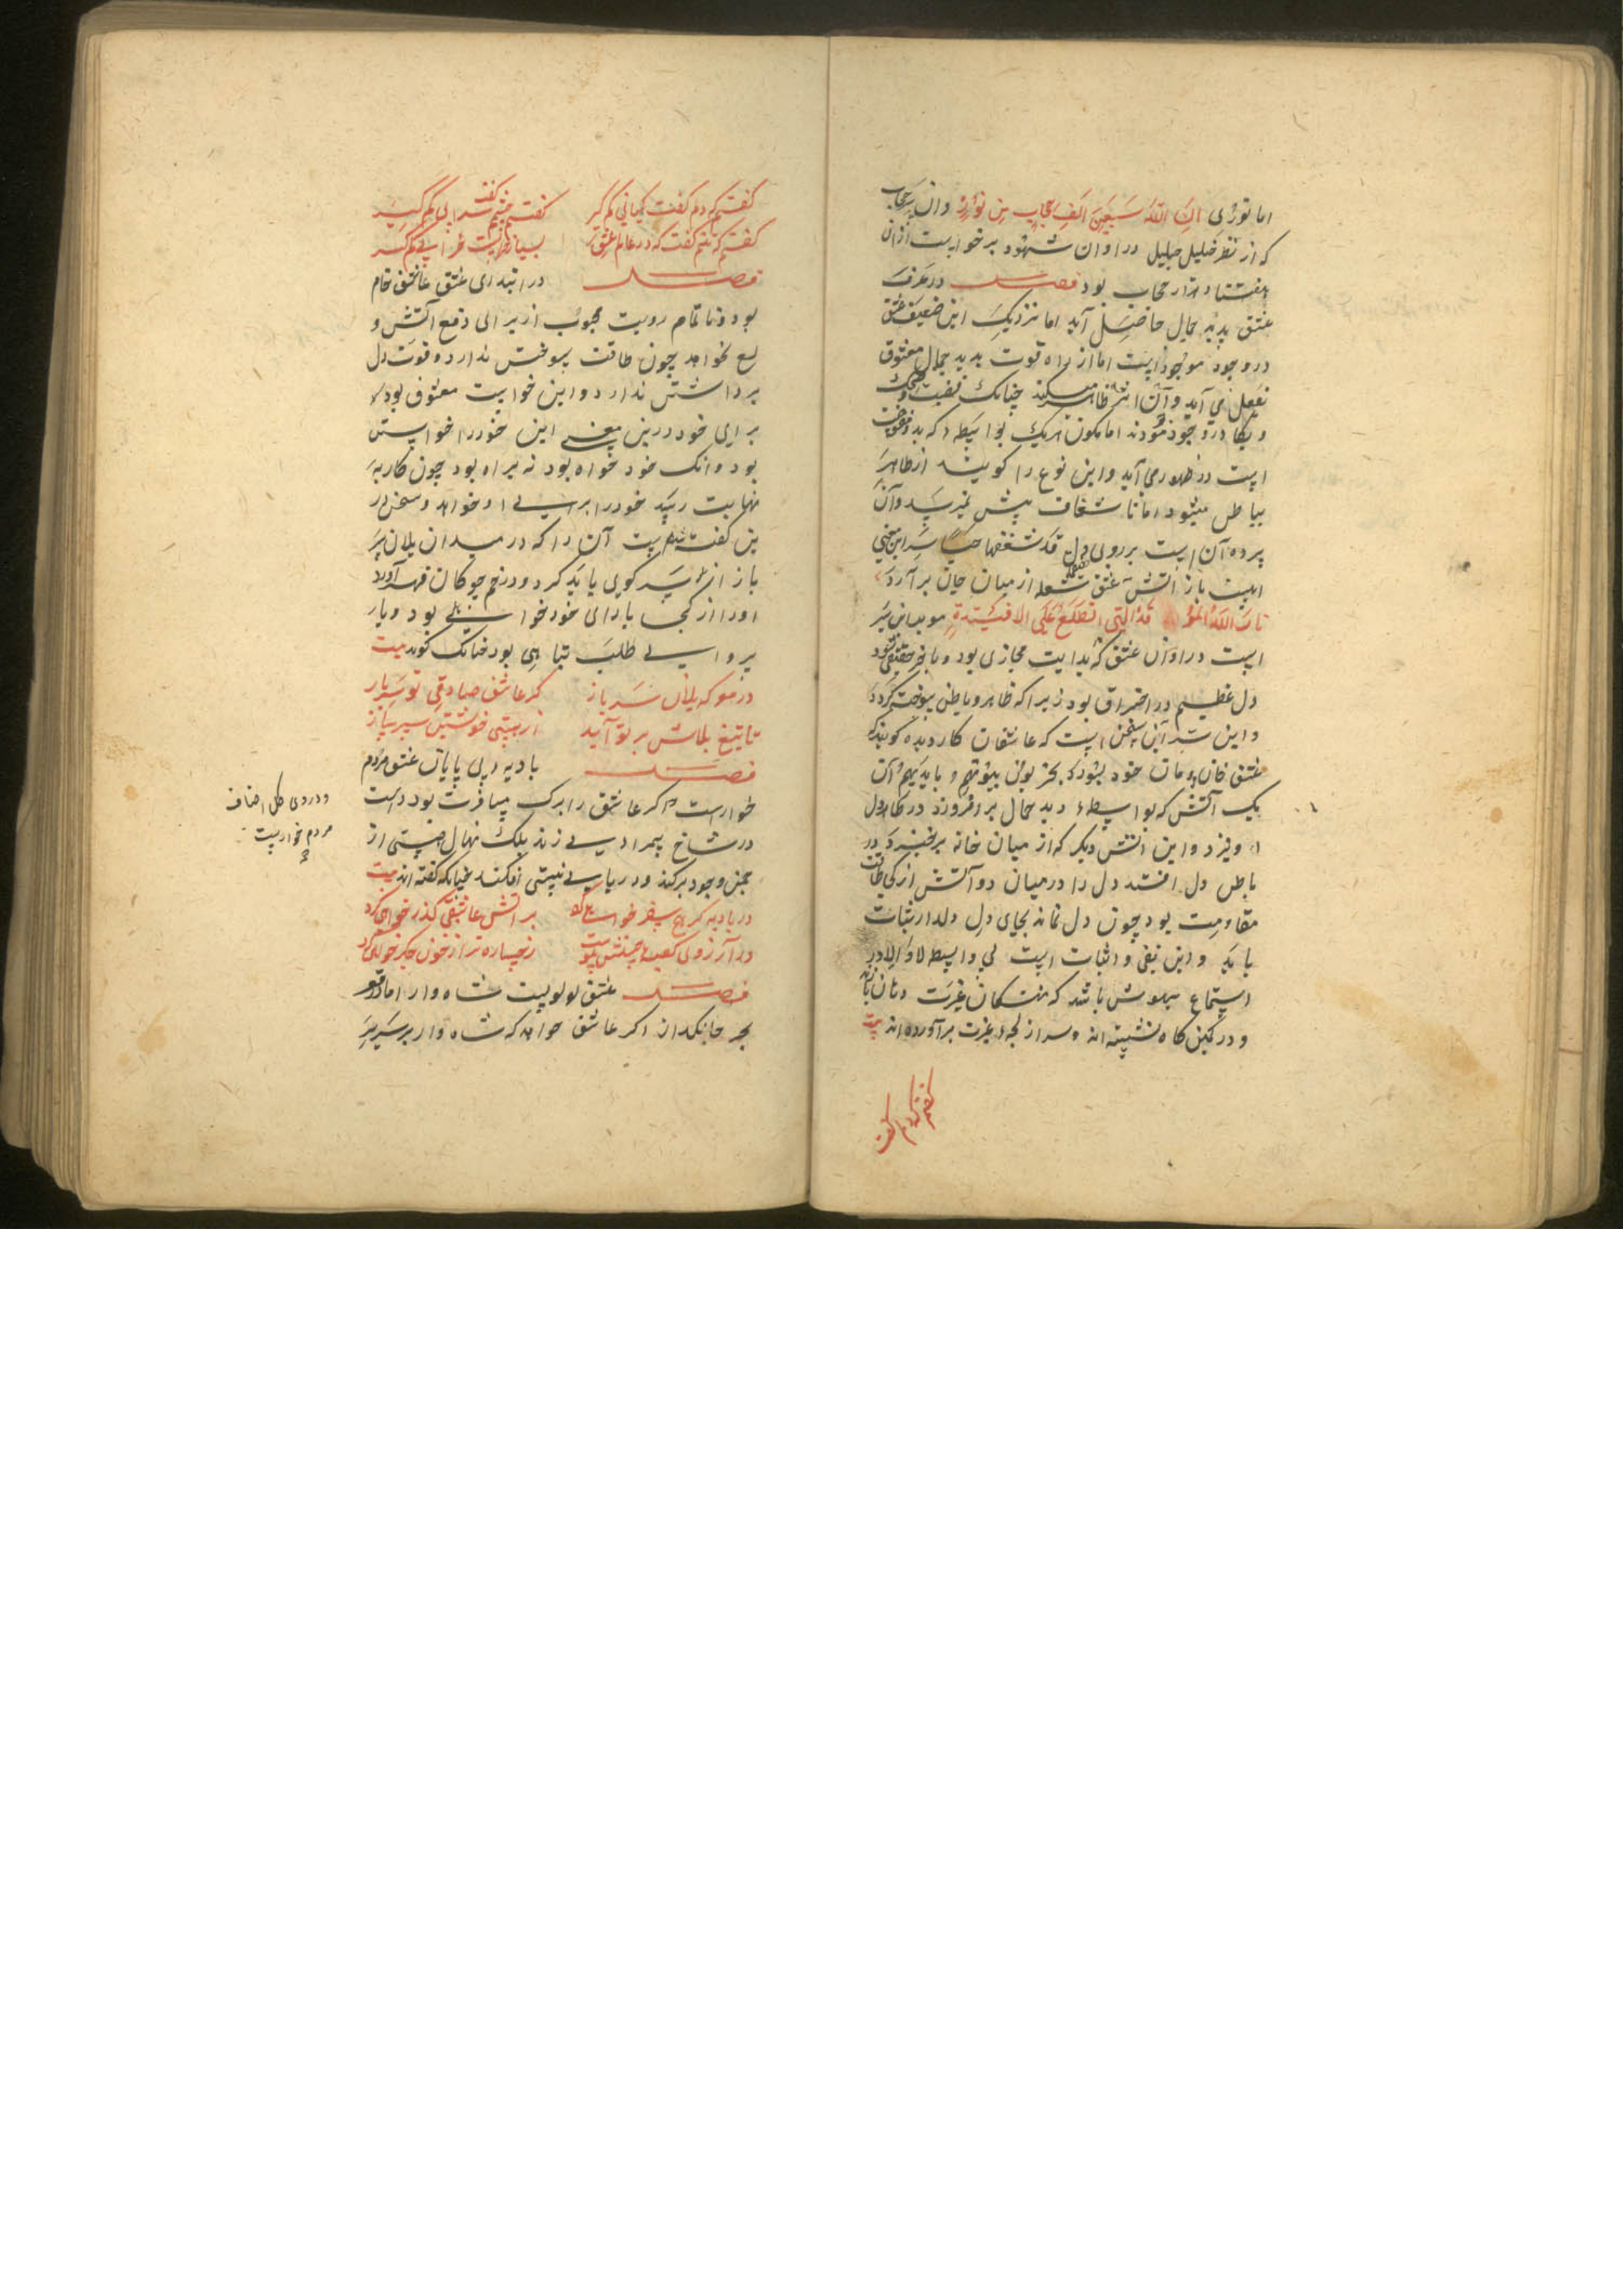 اما نورى ان الله سبعين الف حجاب من نور وان سر حجاب
که از نظر خلیل جلیل در اوان شهود برخواست ازان
هفتتاد هزار حجاب بود فصل در عرف
عشق بدید جمال حاصل آید اما نزدیک این ضعیف عشق
در وجود موجود است اما از راه قوت بدید جمال معشوق
بفعل می آید وآن اثر ظاهر میکند چنانک
در وجود اما بکون هریک بواسطه که بدو
است در ظهور می آید واین نوع را کویند از ظاهر
بباطن میشود اما تا شغاف پیش نمیرسد وآن
پرده آن است بر روی دل قد شغفها حبا سر این معنی
است باز آتش عشق شعله از میان جان برآرد
نار الله المو قدة التی تطلع علی الافئیدة موید این سر
است در اوان عشق که بدایت مجازی بود وباخر حقیقی شود
دل عظیم در احتراق بود زیرا که ظاهر وباطن سوخته کردد
واین سر آن سخن است که عاشقان کاردیده کویند که
عشق خان ومان خود بسوزد یخربون بیوتهم وبایدیهم آن
یک آتش که بواسطه دید جمال برافروزد در ظاهر دل
او ویزد واین آتش دیکر که از میان خانه برخیزد در
باطن دل افتد دل را در میان دو آتش از کجا طاقت
مقاومت بود چون دل نماند بجای دل دلدار ثبات
یابد واین نفی واثبات است بی واسطه لا والا در
استماع بیهوش باشد که غیرت
ودر کمین کاه نشسته اند وسر از لجه عزت برآورده اند بیت
کفتم که دلم کفت
کفتم که دلم کفت کبابی کم کیر کفتم چشمم کفت سرابی کم کیر
کفتم که تنم کفت که در عالم عشق بسیار خرابست خرابی کم کیر
فصل در ابتدای عشق عاشق خام
بود ونا تمام رویت محبوب از برای دفع آتش و
خواهد چون طاقت سوختن ندارد وقوت دل
برداشتن ندارد واین خواست معشوق بود
برای خود درین معنی این خود را خواستن
بود وانک خود خواه بود نه براه بود چون کار به
نهایت رسد خود را برای او خواهد وسخن در
بن کفتنیست آن را که در میدان یلان سر
باز از سر کویی باید کرد ودر خم چوکان قهر آورد
اورا از کجا یارای خودخواهی بود وبار
پروای طلب تباهی بود چنانک کوید بیت
در معرکه یلان سرباز کر عاشق صادقی تو سر باز
تا تیغ بلاش بر تو آید از هستی خویشتن سپر ساز
فصل بادیه بی پایان عشق مردم
خوارست اکر عاشق را برک مسافرت بود دست
در شاخ بیمرادی زند بلک نهال هستی از
چمن وجود برکند ودر دریای نیستی افکند چنانکه کفته اند بیت
در بادیه کر سفر خواهی کرد بر آتش عاشقی کذر خواهی کرد
در آرزوی کعبه رخساره تر از خون جکر خواهی کرد
فصل عشق لولویست شاه وار اما در قعر
بحر جانکداز اکر عاشق خواهد که شاه وار بر سریر
ودروی کل اصناف
مردم خواریست